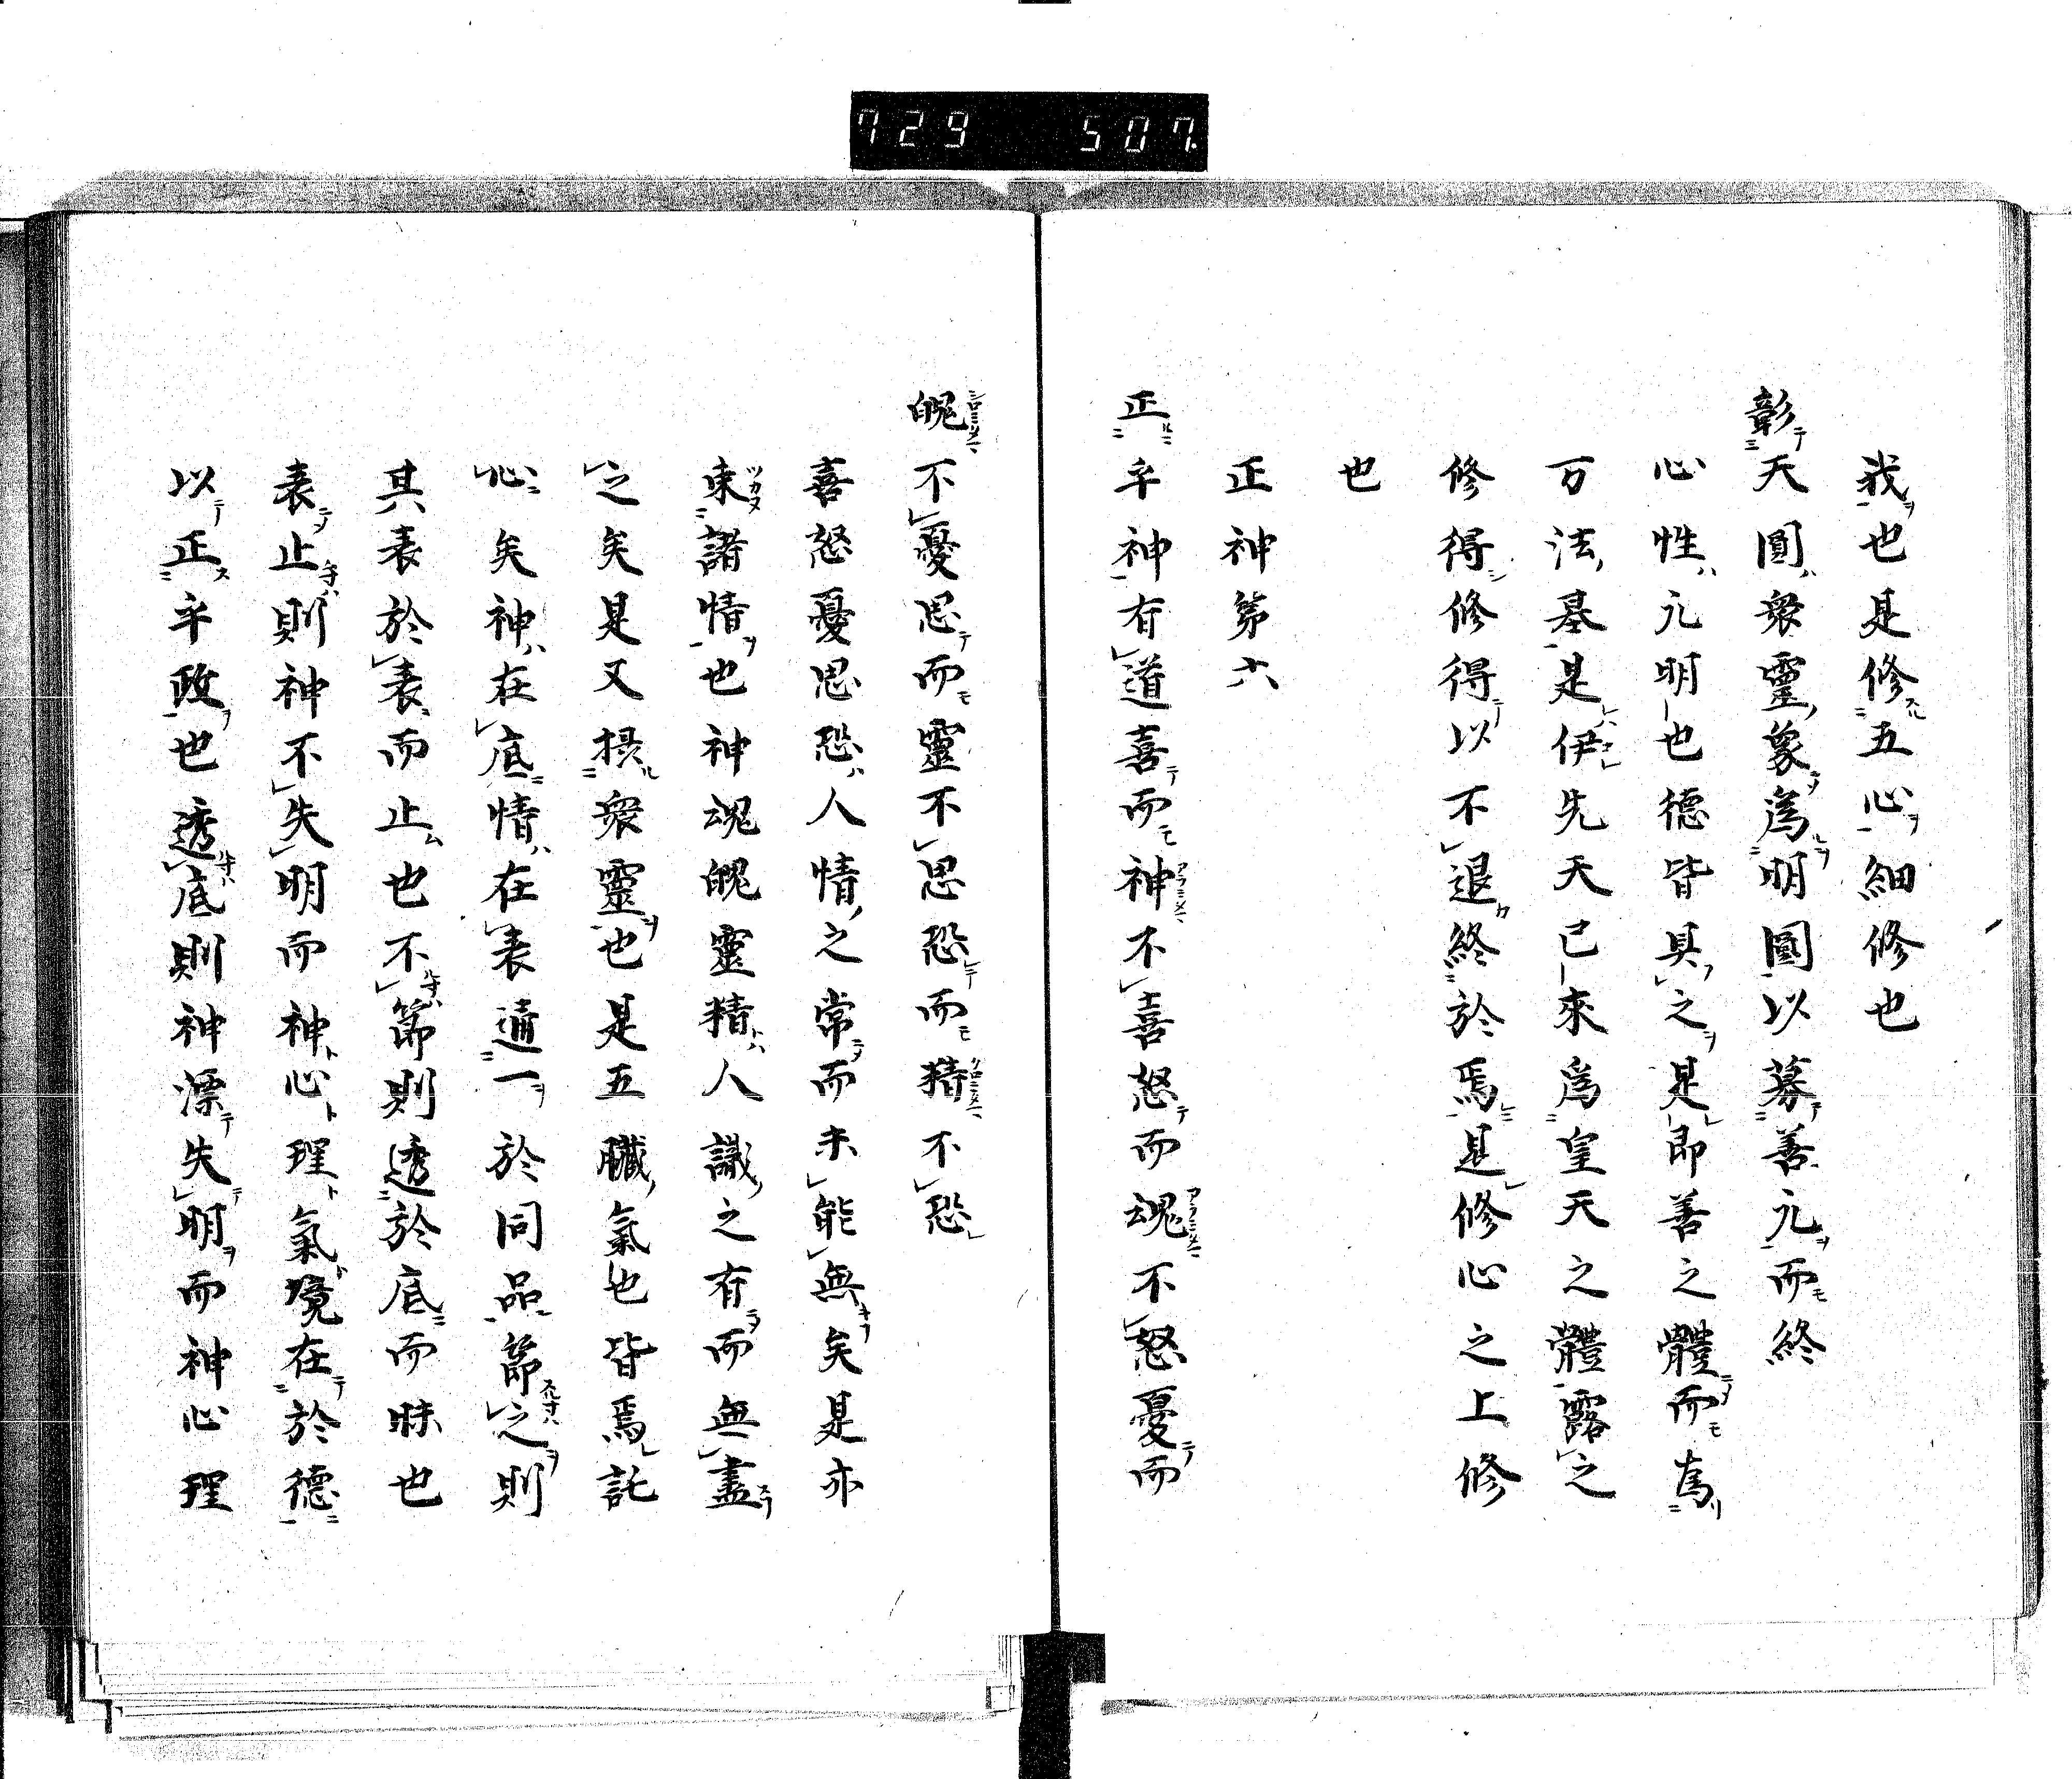 729 507.
我也是修五心細修也
彰天圓衆靈象爲明圓以募善元而終
心性元明也德皆具之是即善之體而為
万法基是伊先天已來爲皇天之體露之
修得修得以不退終於焉是修心之上修
也
正神第六
正辛神有道喜而神不喜怒而魂不怒憂而
魄不憂思而靈不思恐而精不恐
喜怒憂思恐人情之常而未能無矣是亦
束諸情也神魂魄靈精人識之有而無盡
之矣是又摂衆靈也是五臓氣也皆焉託
心矣神在底情在表通一於同品節之則
其表於表而止也不節則透於底而昧也
表止則神不失明而神心理氣境在於德
以正辛政也透底則神漂失明而神心理